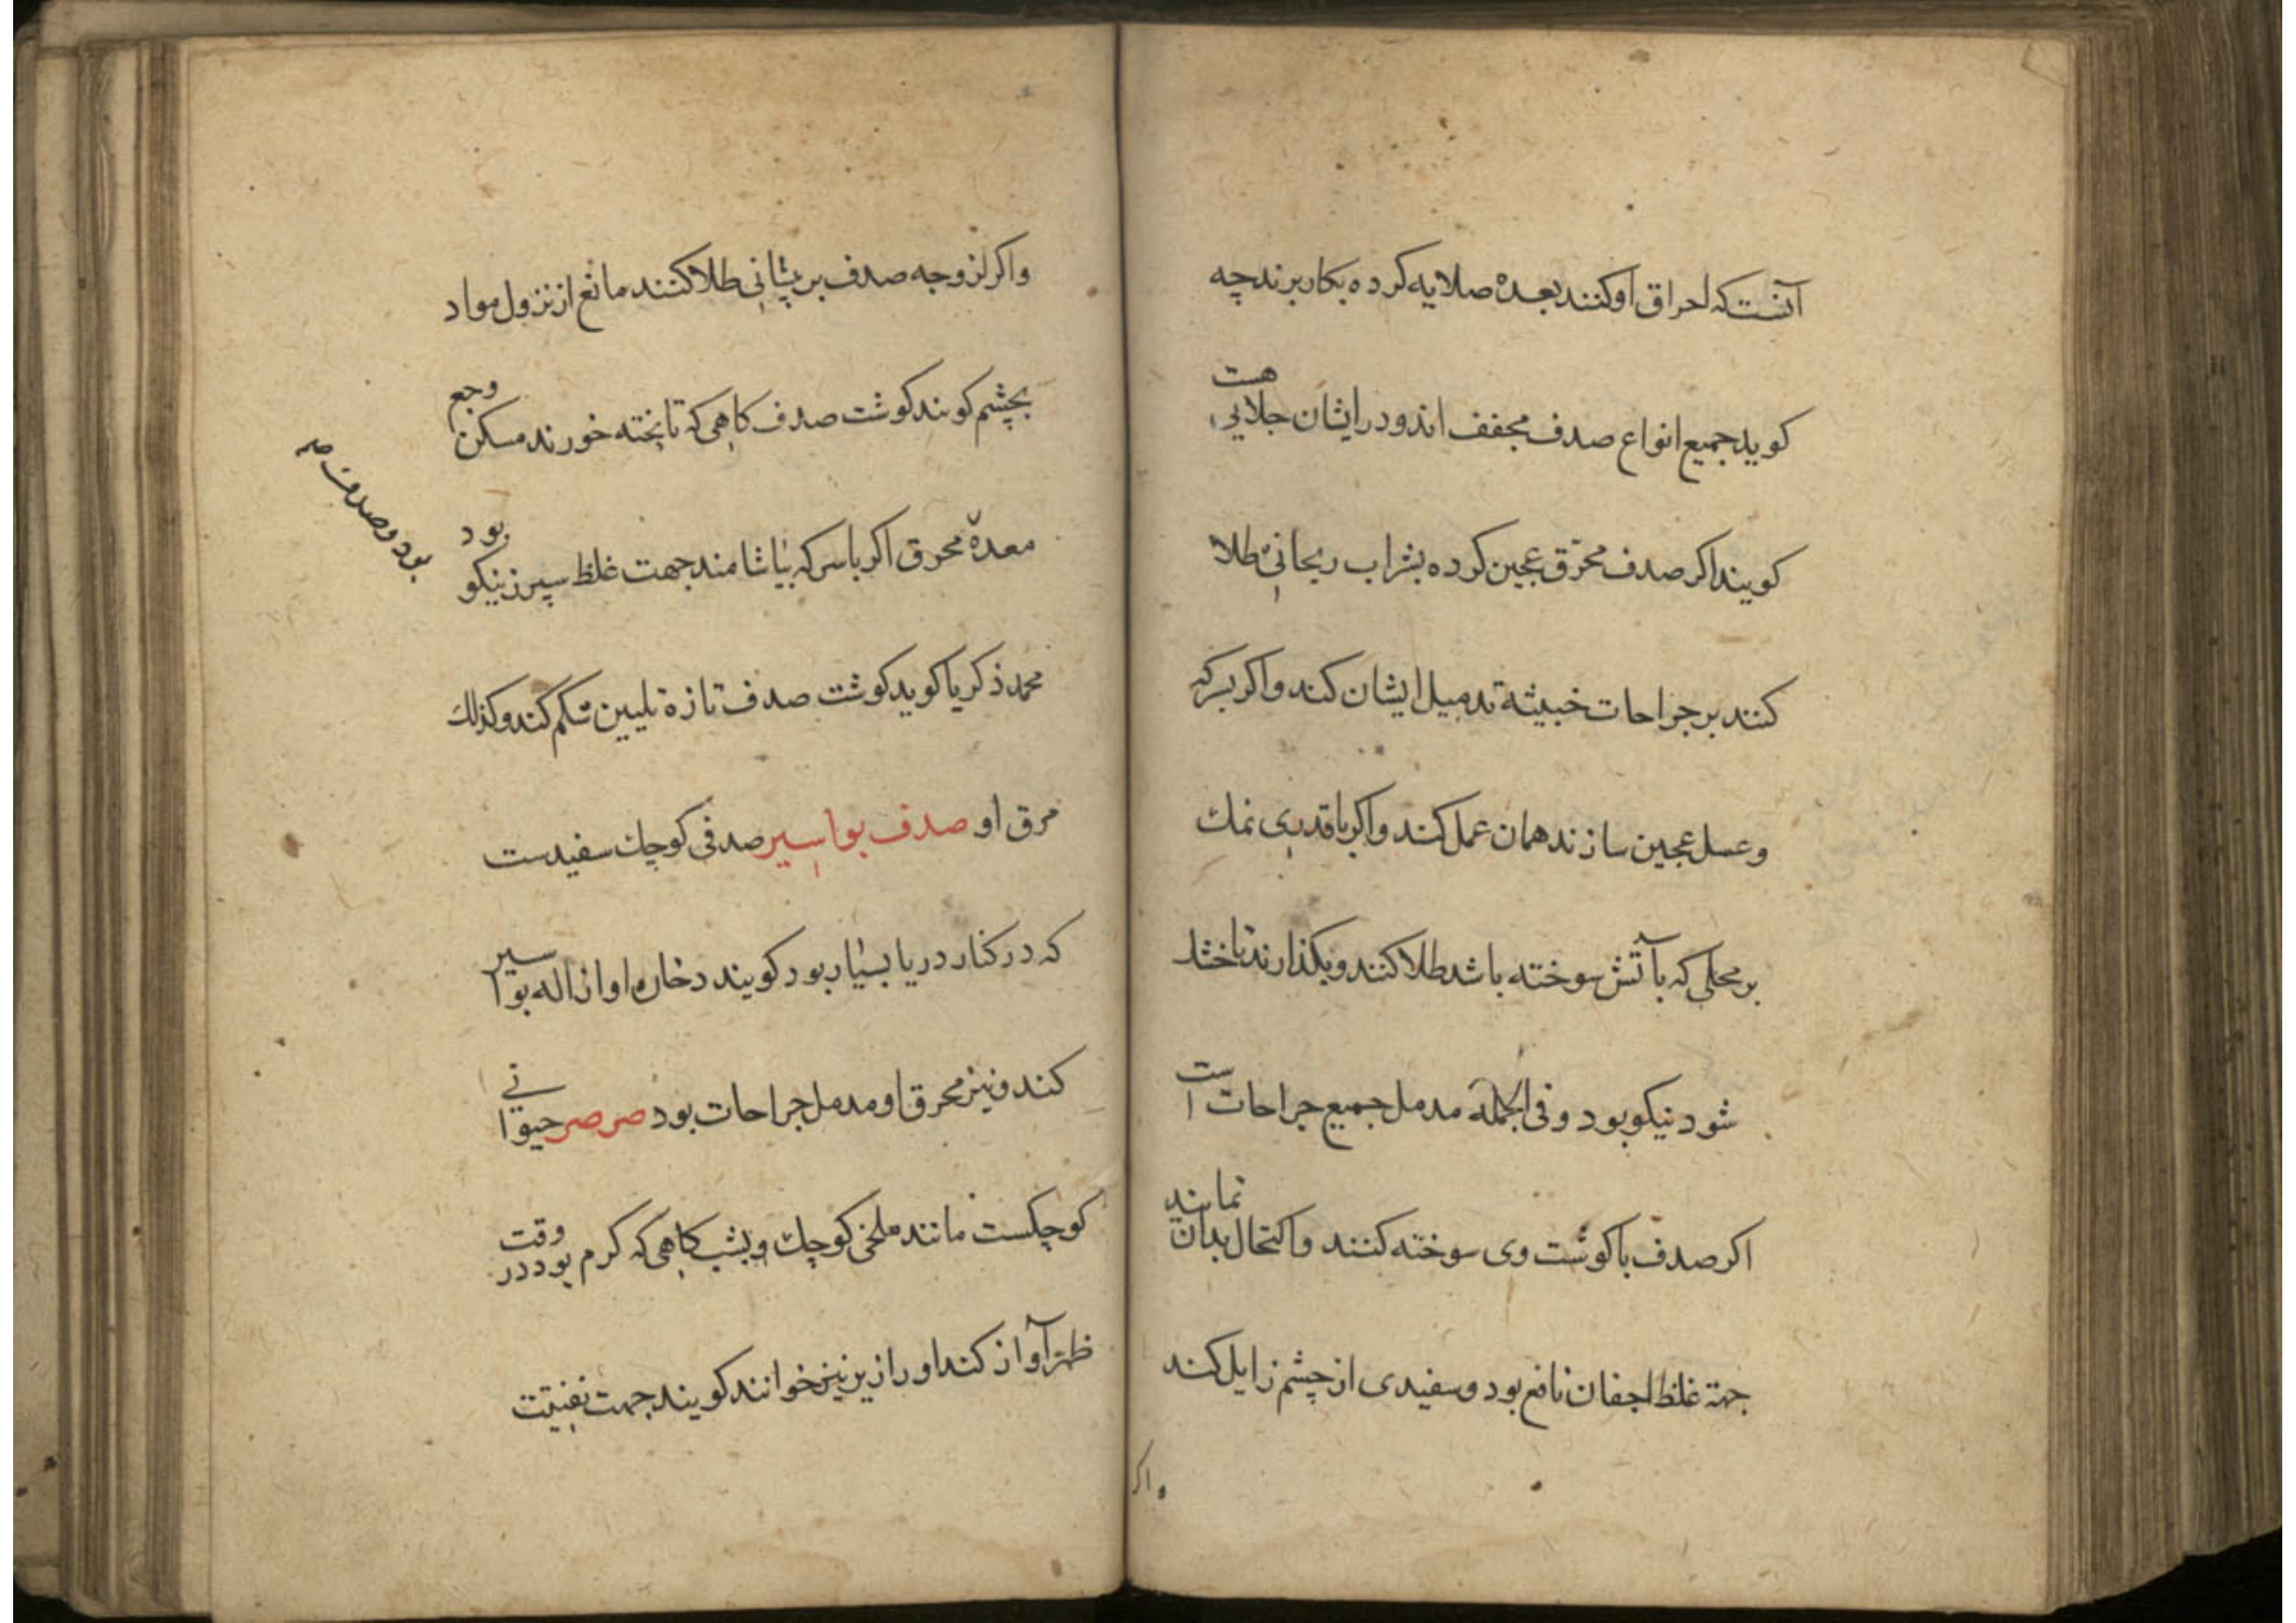 آنست که احراق او کنند بعده صلایه کرده بکار برند چه
کوید جمیع انواع صدف مجفف اند و در ایشان جلایی هست
کویند اکر صدف محرّق عجین کرده بشراب ریحانی طلا
کنند بر جراحات خبیثه تدمیل ایشان کند و اکر بسرکه
و عسل عجین سازند همان عمل کند و اکر با قدری نمک
بر محلی که بآتش سوخته باشد طلا کنند و بکذارند تا خشک
شود نیکو بود و فی الجمله مدمل جمیع جراحات است
اکر صدف با کوشت وی سوخته کنند و اکتحال بدان نمایند
جهة غلظ اجفان نافع بود و سفیدی از چشم زایل کند
واکر
واکر لزوجه صدف بر پیشانی طلا کنند مانع از نزول مواد
بچشم کویند کوشت صدف کاهی که تا پخته خورند مسکن وجع
معدهٔ محرق اکر با سرکه بیاشامند جهت غلظ سپرز نیکو بود
بود و صدف
محمد ذکریا کوید کوشت صدف تازه تلیین شکم کند و کذلک
مرق او صدف بواسیر صدفی کوچک سفیدست
که در کنار دریا بسیار بود کویند دخان او ازاله بواسیر
کند و نیز محرق او مدمل جراحات بود صرصر حیوانی
کوچکست مانند ملخی کوچک و بشب کاهی که کرم بود در وقت
ظهر آواز کند او را زیز نیز خوانند کویند جهت تفتیت